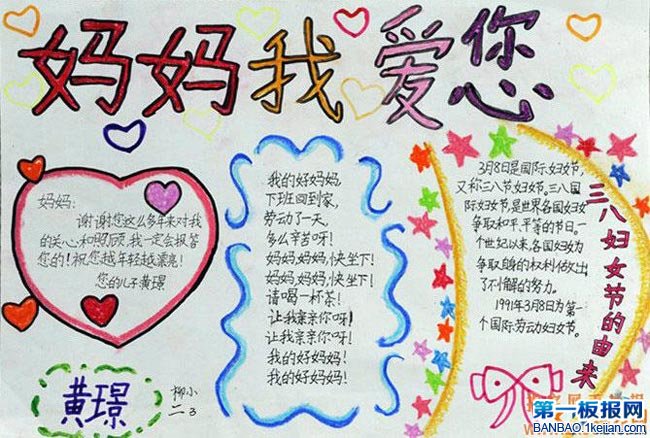 妈妈我爱您
妈妈:
谢谢您这么多年来对我
的关心和照顾,我一定会报答
您的!祝您越年轻越漂亮!
您的儿子黄璟
我的好妈妈,
下班回到家,
劳动了一天,
多么辛苦呀!
妈妈,妈妈,快坐下!
妈妈,妈妈,快坐下!
请喝一杯茶!
让我亲亲你呀!
让我亲亲你呀!
我的好妈妈!
我的好妈妈!
三八妇女节的由来
3月8日是国际妇女节,
又称三八节妇女节,三八国
际妇女节,是世界各国妇女
争取和平、平等的节日一
个世纪以来,各国妇女为
争取自身的权利做出
了不懈的努力。
1991年3月8日为第一
个国际劳动妇女节。
黄璟
柳小
二3
第一板报网
BANBAO.1kejian.com